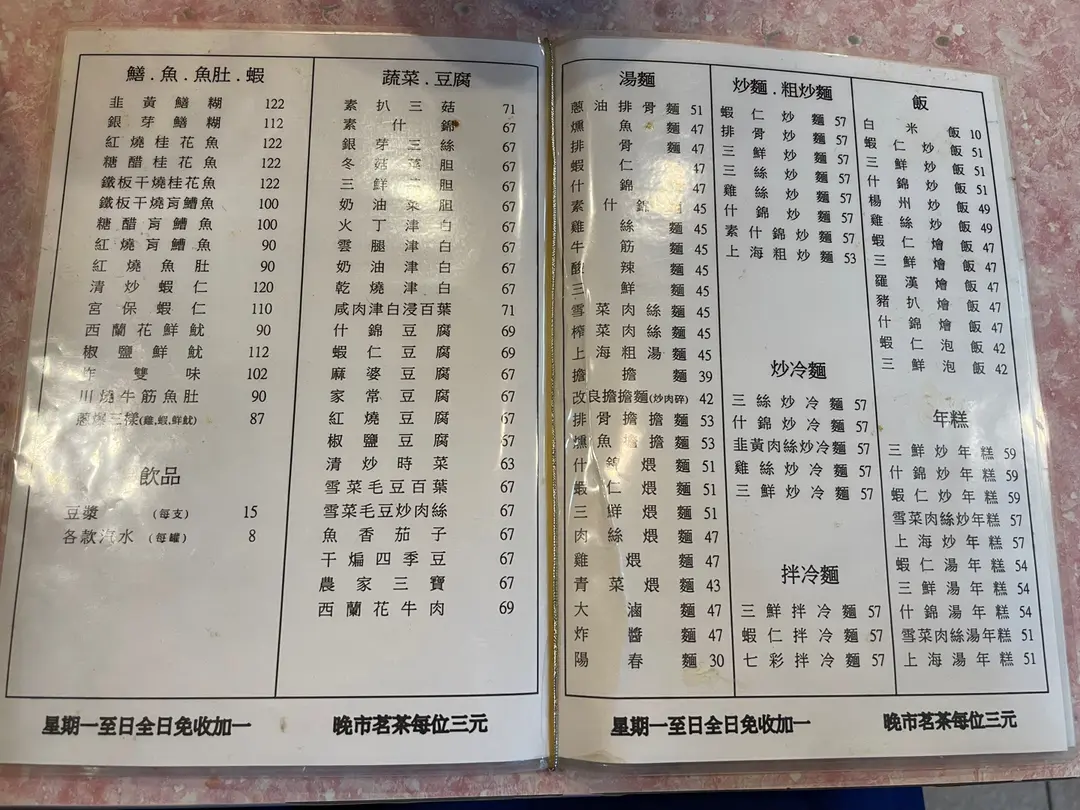 鱔.魚.魚肚.蝦
韭黃鱔糊 122
銀芽鱔糊 112
紅燒桂花魚 122
糖醋桂花魚 122
鐵板干燒桂花魚 122
鐵板干燒肓鰽魚 100
糖醋肓鰽魚 100
紅燒肓鰽魚 90
紅燒魚肚 90
清炒蝦仁 120
宮保蝦仁 110
西蘭花鮮魷 90
椒鹽鮮魷 112
炸雙味 102
川燒牛筋魚肚 90
蔥爆三樣(雞,蝦,鮮魷) 87
飲品
豆漿 (每支) 15
各款汽水 (每罐) 8
蔬菜.豆腐
素扒三菇 71
素什錦 67
銀芽三絲 67
冬菇菜胆 67
三鮮菜胆 67
奶油菜胆 67
火丁津白 67
雲腿津白 67
奶油津白 67
乾燒津白 67
咸肉津白浸百葉 71
什錦豆腐 69
蝦仁豆腐 69
麻婆豆腐 67
家常豆腐 67
紅燒豆腐 67
椒鹽豆腐 67
清炒時菜 63
雪菜毛豆百葉 67
雪菜毛豆炒肉絲 67
魚香茄子 67
干煸四季豆 67
農家三寶 67
西蘭花牛肉 69
星期一至日全日免收加一 晚市茗茶每位三元
湯麵
蔥油排骨麵 51
燻魚麵 47
排骨麵 47
蝦仁麵 47
什錦麵 47
素什錦麵 45
雞絲麵 45
牛筋麵 45
酸辣麵 45
三鮮麵 45
雪菜肉絲麵 45
榨菜肉絲麵 45
上海粗湯麵 45
擔擔麵 39
改良擔擔麵(炒肉碎) 42
排骨擔擔麵 53
燻魚擔擔麵 53
什錦煨麵 51
蝦仁煨麵 51
三鮮煨麵 51
肉絲煨麵 47
雞煨麵 47
青菜煨麵 43
大滷麵 47
炸醬麵 47
陽春麵 30
炒麵.粗炒麵
蝦仁炒麵 57
排骨炒麵 57
三鮮炒麵 57
三絲炒麵 57
雞絲炒麵 57
什錦炒麵 57
素什錦炒麵 57
上海粗炒麵 53
炒冷麵
三絲炒冷麵 57
什錦炒冷麵 57
韭黃肉絲炒冷麵 57
雞絲炒冷麵 57
三鮮炒冷麵 57
拌冷麵
三鮮拌冷麵 57
蝦仁拌冷麵 57
七彩拌冷麵 57
飯
白米飯 10
蝦仁炒飯 51
三鮮炒飯 51
什錦炒飯 51
楊州炒飯 49
雞絲炒飯 49
蝦仁燴飯 47
三鮮燴飯 47
羅漢燴飯 47
豬扒燴飯 47
什錦燴飯 47
蝦仁泡飯 42
三鮮泡飯 42
年糕
三鮮炒年糕 59
什錦炒年糕 59
蝦仁炒年糕 59
雪菜肉絲炒年糕 57
上海炒年糕 57
蝦仁湯年糕 54
三鮮湯年糕 54
什錦湯年糕 54
雪菜肉絲湯年糕 51
上海湯年糕 51
星期一至日全日免收加一 晚市茗茶每位三元